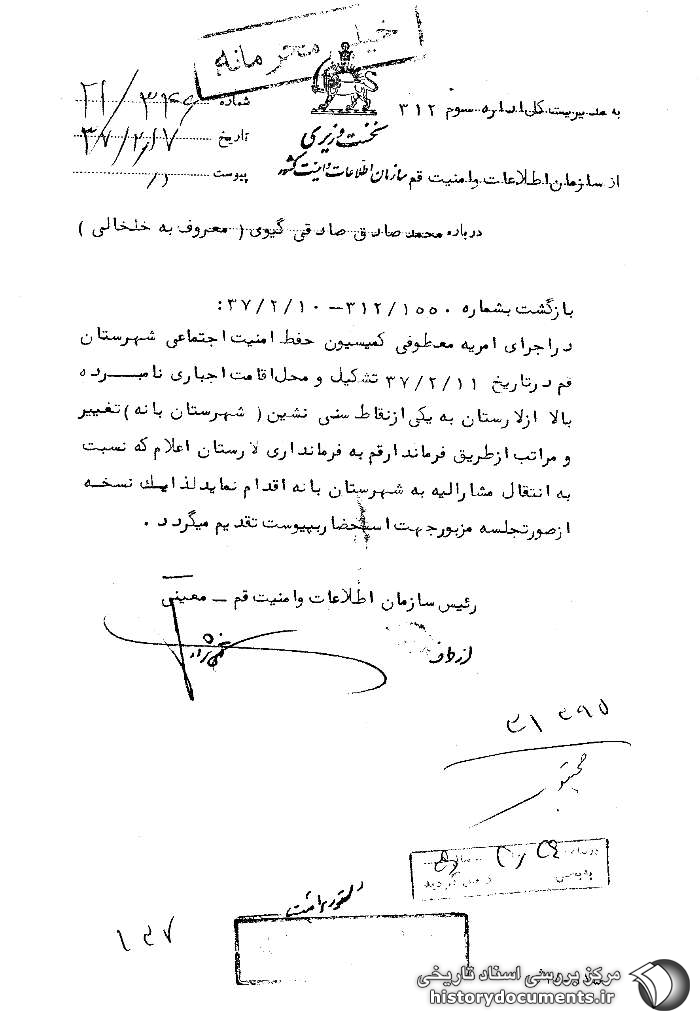 خیلی محرمانه
به مدیریت کل اداره سوم ۳۱۲
نخست وزیری
سازمان اطلاعات و امنیت کشور
شماره ۲۱/۳۴۶
تاریخ ۳۷/۲/۱۷
پیوست ۱/
از سازمان اطلاعات و امنیت قم
درباره محمد صادق صادقی گیوی ( معروف به خلخالی )
بازگشت بشماره ۳۱۲/۱۵۵۰ – ۳۷/۲/۱۰ :
در اجرای امریه معطوفی کمیسیون حفظ امنیت اجتماعی شهرستان
قم در تاریخ ۳۷/۲/۱۱ تشکیل و محل اقامت اجباری نامبرده
بالا از لارستان به یکی از نقاط سنی نشین ( شهرستان بانه ) تغییر
و مراتب از طریق فرماندار قم به فرمانداری لارستان اعلام که نسبت
به انتقال مشارالیه به شهرستان بانه اقدام نماید لذا یک نسخه
از صورتجلسه مزبور جهت استحضار بپیوست تقدیم میگردد .
رئیس سازمان اطلاعات و امنیت قم – معینی
از طرف
۳۱۳۹۵
۱۴۷
مرکز بررسی اسناد تاریخی
historydocuments.ir